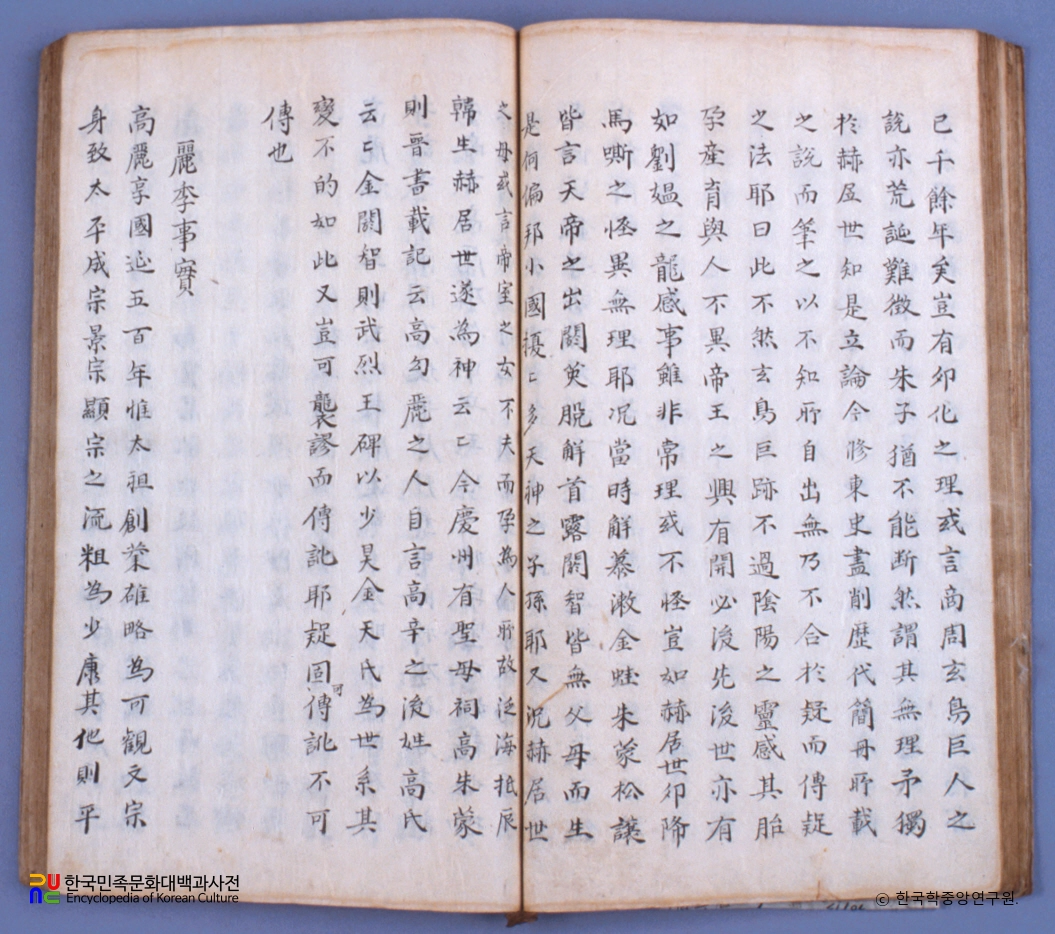 已千餘年矣豈有卵化之理或言商周玄鳥巨人之
說亦荒誕難徵而朱子猶不能斷然謂其無理矛獨
扵赫居世知是立論今修東史盡削歷代簡冊所載
之說而筆之以不知所自出無乃不合於疑而傳疑
之法耶曰此不然玄鳥巨跡不過陰陽之靈感其胎
孕産育與人不異帝王之興有開必先後世亦有
如劉媼之龍感事雖非常理或不怪豈如赫居世卯降
馬嘶之怪異無理耶况當時觧慕漱金蛙朱蒙松讓
皆言天帝之出閼英脫觧首露閼智皆無父母而生
是何偏邦小國擾〻多天神之子孫耶又况赫居世
之母或言帝室之女不夫而孕為人所放泛海抵辰
韓生赫居世遂為神云〻今慶州有聖母祠高朱蒙
則晋書載記云高勾麗之人自言高辛之後姓高氏
云〻金閼智則武烈王碑以少昊金天氏為世系其
變不的如此又豈可襲謬而傳訛耶疑固可傳訛不可
傳也
麗李事實
高麗享國近五百年惟太祖創業雄略為可觀文宗
身致太平成宗景宗顯宗之流粗為少康其他則平
한국민족문화대백과사전
Encyclopedia of Korean Culture
© 한국학중앙연구원.